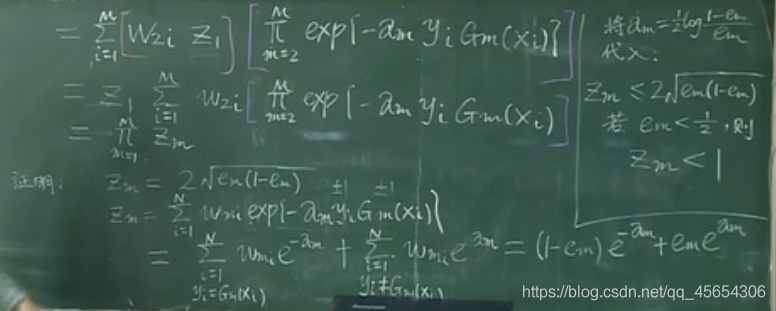 = \sum_{i=1}^{M} [W_{2i} Z_1] [\prod_{m=2}^{M} exp{-a_m y_i G_m(x_i)}]
= Z_1 \sum_{i=1}^{M} w_{2i} [\prod_{m=2}^{M} exp{-a_m y_i G_m(x_i)]
= \prod_{m=1}^{M} Z_m
证明: Z_m = 2\sqrt{e_m(1-e_m)}
±1 ±1
Z_m = \sum_{i=1}^{N} w_{mi} exp{-a_m y_i G_m(x_i)}
= \sum_{i=1}^{N} w_{mi} e^{-a_m} + \sum_{i=1}^{N} w_{mi} e^{a_m} = (1-e_m) e^{-a_m} + e_m e^{a_m}
y_i = G_m(x_i) y_i ≠ G_m(x_i)
将 a_m = \frac{1}{2} log \frac{1-e_m}{e_m}
代入:
Z_m ≤ 2\sqrt{e_m(1-e_m)}
若 e_m < \frac{1}{2}, 则
Z_m < 1
https://blog.csdn.net/qq_45654306